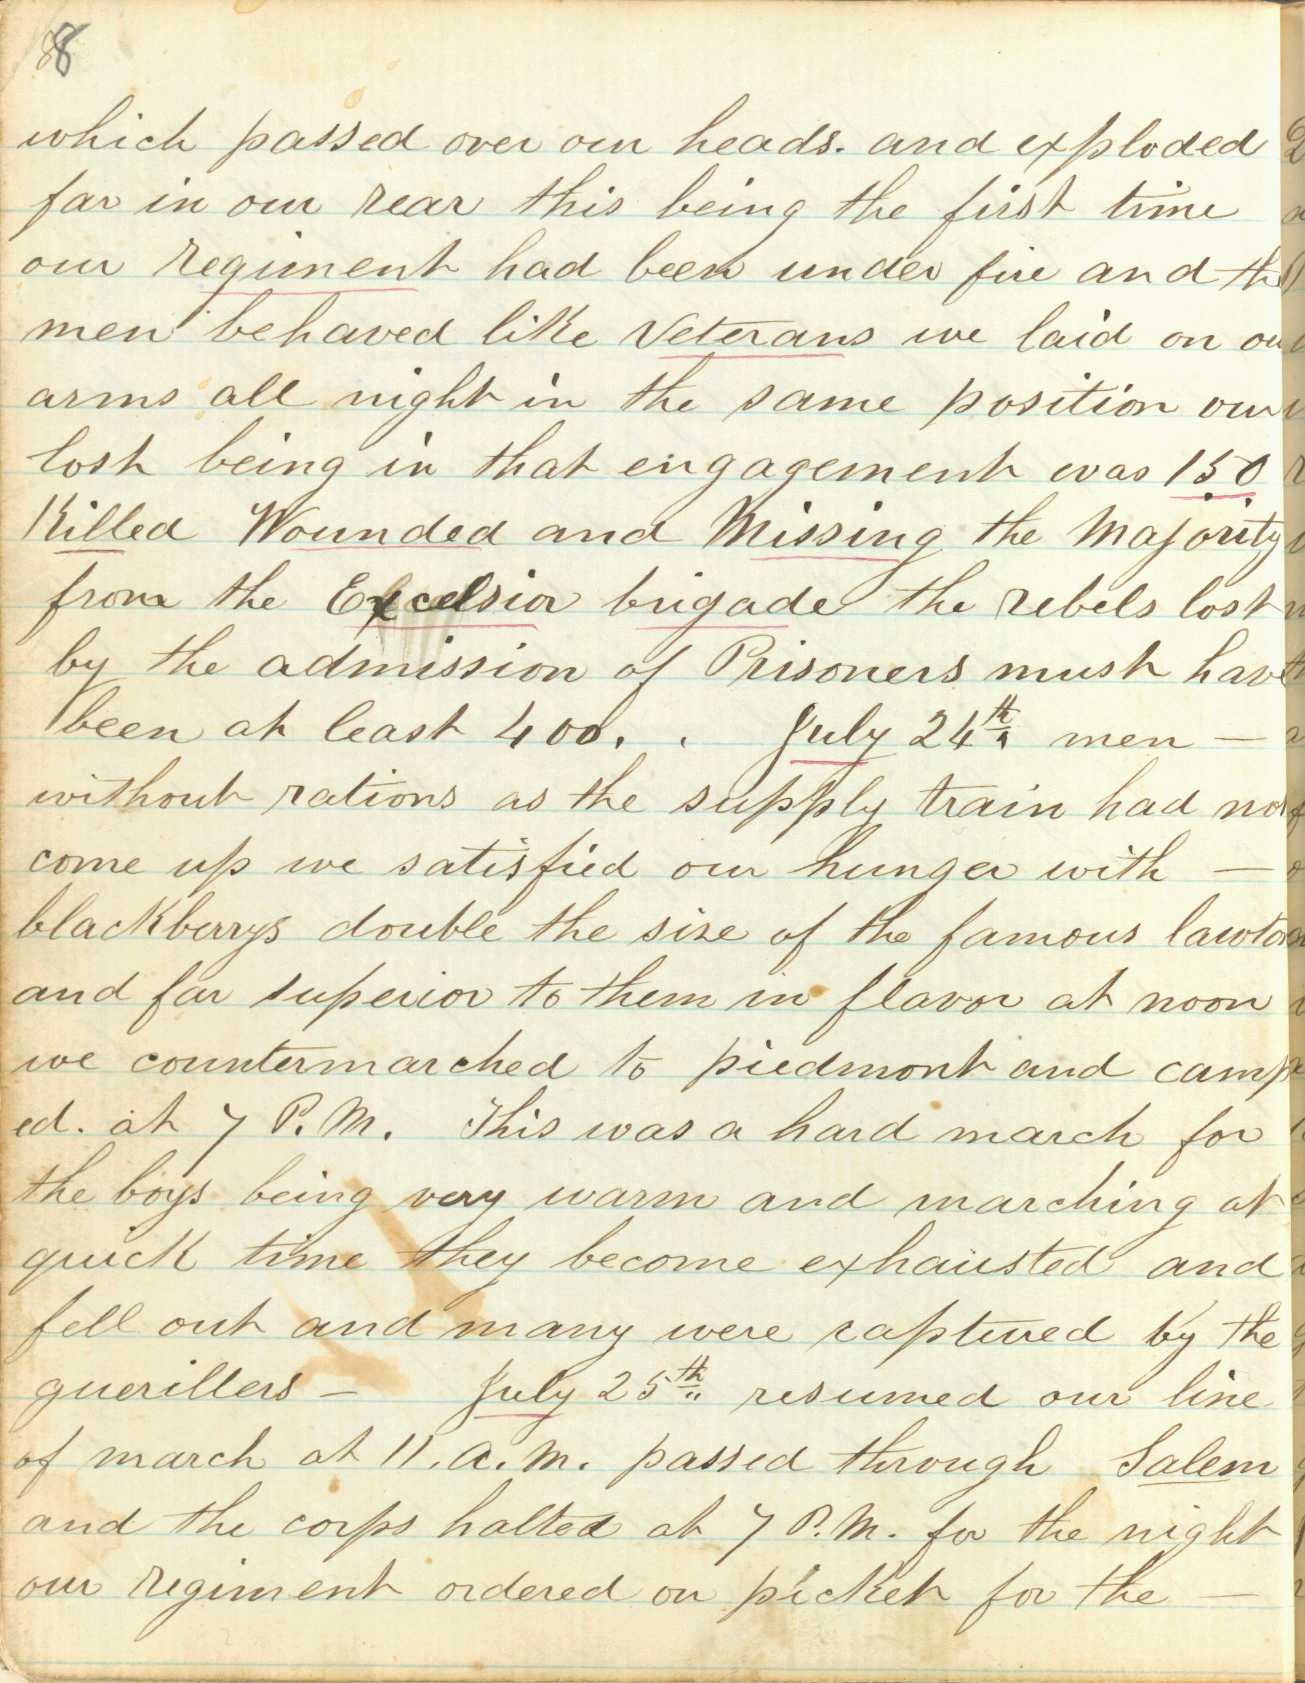 88
which passed over our heads. and exploded
far in our rear this being the first time
our regiment had been under fire and the
men behaved like Veterans we laid on our
arms all night in the same position our
lost being in that engagement was 150
Killed Wounded and Missing the Majority
from the Excelsior brigade the rebels lost
by the admission of Prisoners must have
been at least 400. . July 24th men —
without rations as the supply train had not
come up we satisfied our hunger with —
blackberrys double the size of the famous lawton
and far superior to them in flavor at noon
we countermarched to piedmont and camp
ed. at 7 P.M. This was a hard march for
the boys being very warm and marching at
quick time they become exhausted and
fell out and many were captured by the
guerillers — July 25th resumed our line
of march at 11. a. m. passed through Salem
and the corps halted at 7 P.M. for the night
our regiment ordered on picket for the —